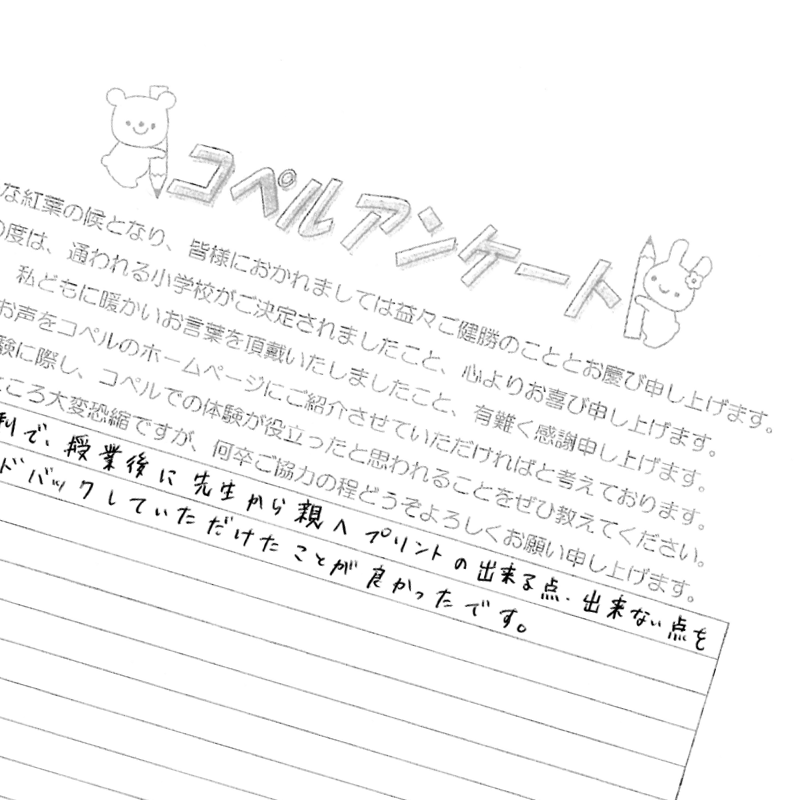 コペルアンケート
な紅葉の候となり、皆様におかれましては益々ご健勝のこととお慶び申し上げます。
の度は、通われる小学校がご決定されましたこと、心よりお喜び申し上げます。
私どもに暖かいお言葉を頂戴いたしましたこと、有難く感謝申し上げます。
お声をコペルのホームページにご紹介させていただければと考えております。
験に際し、コペルでの体験が役立ったと思われることをぜひ教えてください。
ころ大変恐縮ですが、何卒ご協力の程どうぞよろしくお願い申し上げます。
制で、授業後に先生から親へプリントの出来る点・出来ない点を
ドバックしていただけたことが良かったです。